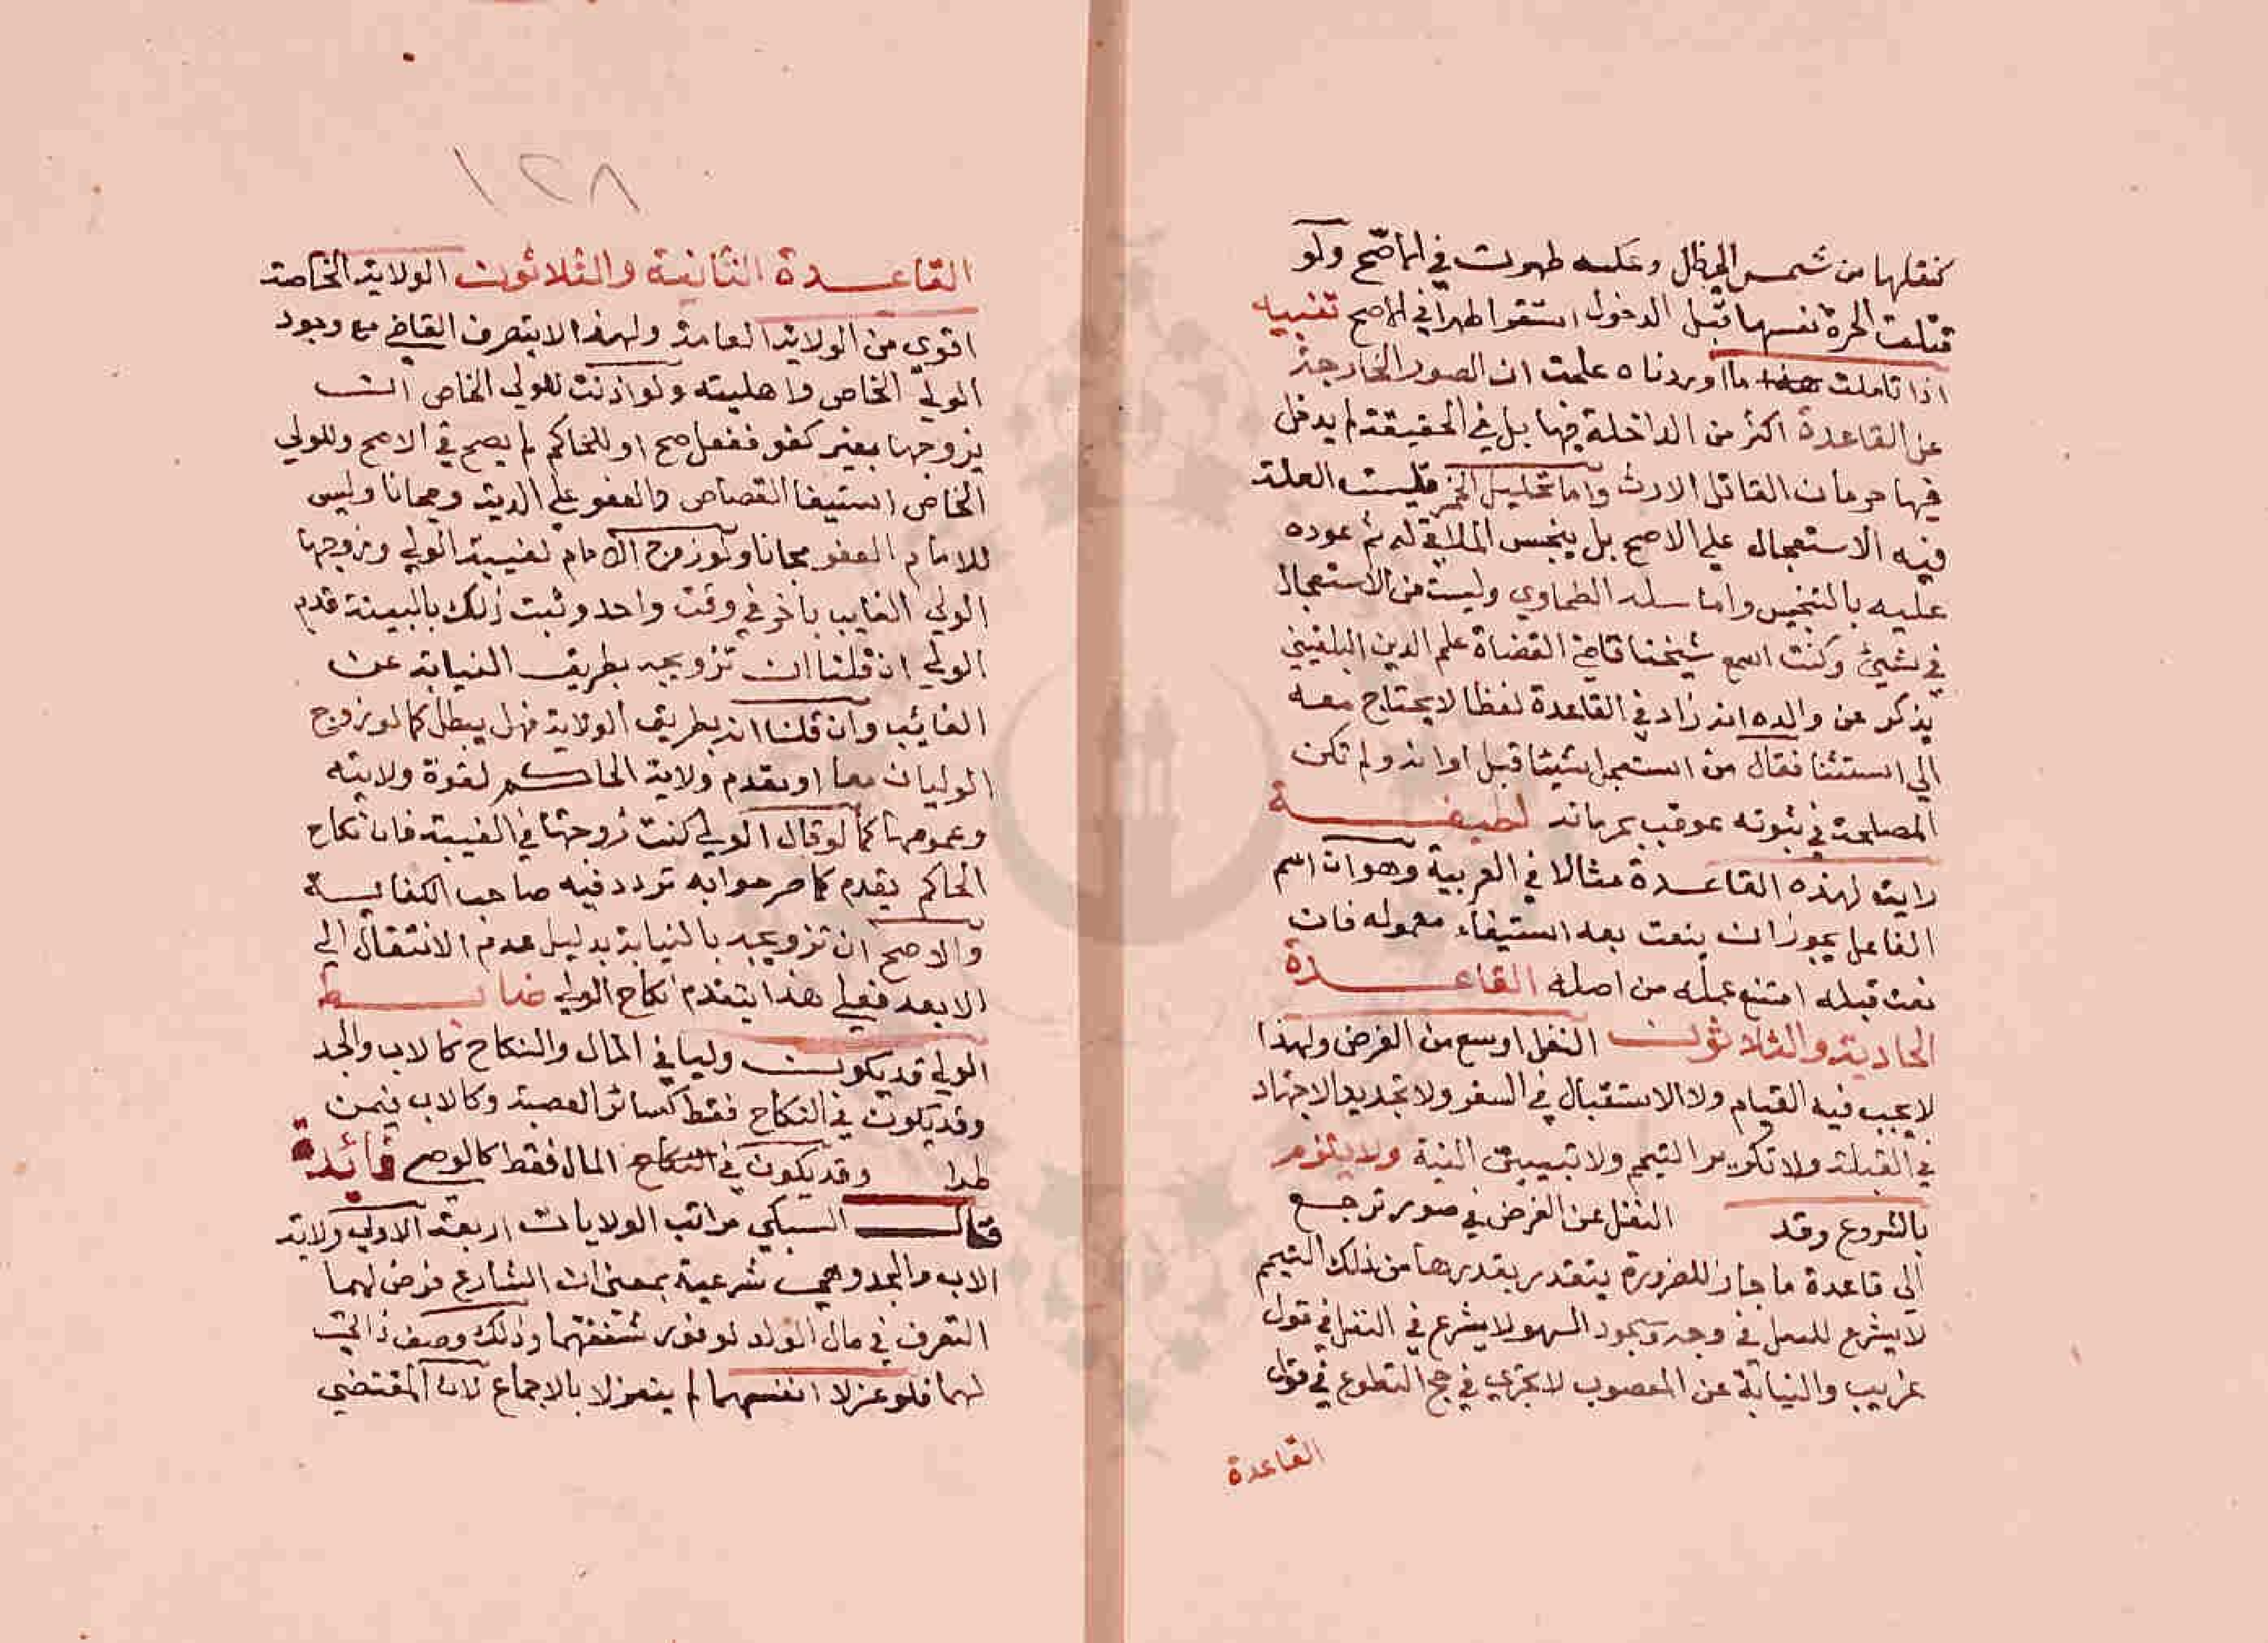 كنقلها من شمس الي ظل وعكسه طهرت في الاصح ولو
قتلت الحرة نفسها قبل الدخول استقر المهر في الاصح تنبيه
اذا تاملت ما اوردناه علمت ان الصور الخارجة
عن القاعدة اكثر من الداخلة فيها بل في الحقيقة لم يدخل
فيها حرمان القاتل الارث واما تخليل الخمر فليست العلة
فيه الاستعجال علي الاصح بل ينجس الملاقي له ثم عوده
عليه بالتنجيس واما سلة الطحاوي وليست من الاستعجال
في شيئ وكنت اسمع شيخنا قاضي القضاة علم الدين البلقيني
يذكر عن والده انه زاد في القاعدة لفظا لا يحتاج معه
الي استثنا فقال من استعجل شيئا قبل اوانه ولم تكن
المصلحة في ثبوته عوقب بحرمانه لطيفة
رايت لهذه القاعدة مثالا في العربية وهو ان اسم
الفاعل يجوز ان ينعت بعد استيفاء معموله فان
نعت قبله امتنع عمله من اصله القاعدة
الحادية والثلاثون النفل اوسع من الفرض ولهذا
لا يجب فيه القيام ولا الاستقبال في السفر ولا تجديد الاجتهاد
في القبلة ولا تكرير التيمم ولا تبييت النية ولا يلزم
بالشروع وقد النفل عن الفرض في صور ترجع
الي قاعدة ما جاز للضرورة يتقدر بقدرها من ذلك التيمم
لا يشرع للنفل في وجه وسجود السهو لا يشرع في النفل في قول
غريب والنيابة عن المعضوب لا تجزي في حج التطوع في قول
القاعدة
١٢٨
القاعدة الثانية والثلاثون الولاية الخاصة
اقوي من الولاية العامة ولهذا لا يتصرف القاضي مع وجود
الولي الخاص واهليته ولو اذنت للولي الخاص ان
يزوجها بغير كفو ففعل صح او للحاكم لم يصح في الاصح وللولي
الخاص استيفا القصاص والعفو علي الدية ومجانا وليس
للامام العفو مجانا ولو زوج الامام لغيبة الولي وزوجها
الولي الغايب باخر في وقت واحد وثبت ذلك بالبينة قدم
الولي ان قلنا ان تزويجه بطريق النيابة عن
الغائب وان قلنا انه بطريق الولاية فهل يبطل كما لو زوج
الوليان معا او تقدم ولاية الحاكم لقوة ولايته
وعمومها كما لو قال الولي كنت زوجتها في الغيبة فان نكاح
الحاكم يقدم كما صرحوا به تردد فيه صاحب الكفاية
والاصح ان تزويجه بالنيابة بدليل عدم الانتقال الي
الابعد فعلي هذا يتقدم نكاح الولي ضابط
الولي قد يكون وليا في المال والنكاح كالاب والجد
وقد يكون في النكاح فقط كسائر العصبة وكالاب فيمن
طرا وقد يكون في المال فقط كالوصي فائدة
قال السبكي مراتب الولايات اربعة الاولي ولاية
الاب والجد وهي شرعية بمعنى ان الشارع فوض لهما
التصرف في مال الولد لوفور شفقتهما وذلك وصف ذاتي
لهما فلو عزلا انفسهما لم ينعزلا بالاجماع لان المقتضي